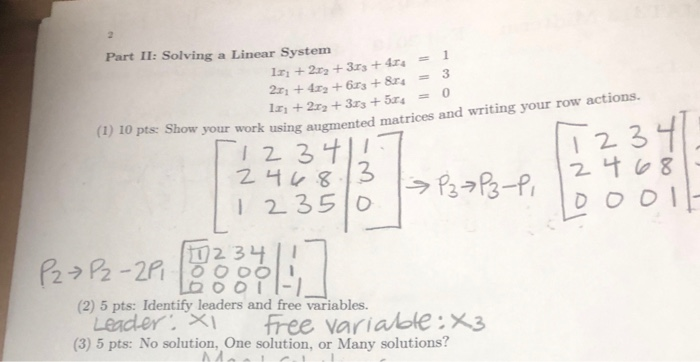 2
Part II: Solving a Linear System
1x₁ + 2x₂ + 3x₃ + 4x₄ = 1
2x₁ + 4x₂ + 6x₃ + 8x₄ = 3
1x₁ + 2x₂ + 3x₃ + 5x₄ = 0
(1) 10 pts: Show your work using augmented matrices and writing your row actions.
[1 2 3 4 | 1 1 2 3 4
2 4 6 8 | 3 → P₃→P₃-P₁ 2 4 6 8
1 2 3 5 | 0] 0 0 0 1
P₂→P₂-2P₁ [1 2 3 4 | 1
0 0 0 0 | 1
0 0 0 1 | -1]
(2) 5 pts: Identify leaders and free variables.
Leader: X1 Free variable: X3
(3) 5 pts: No solution, One solution, or Many solutions?